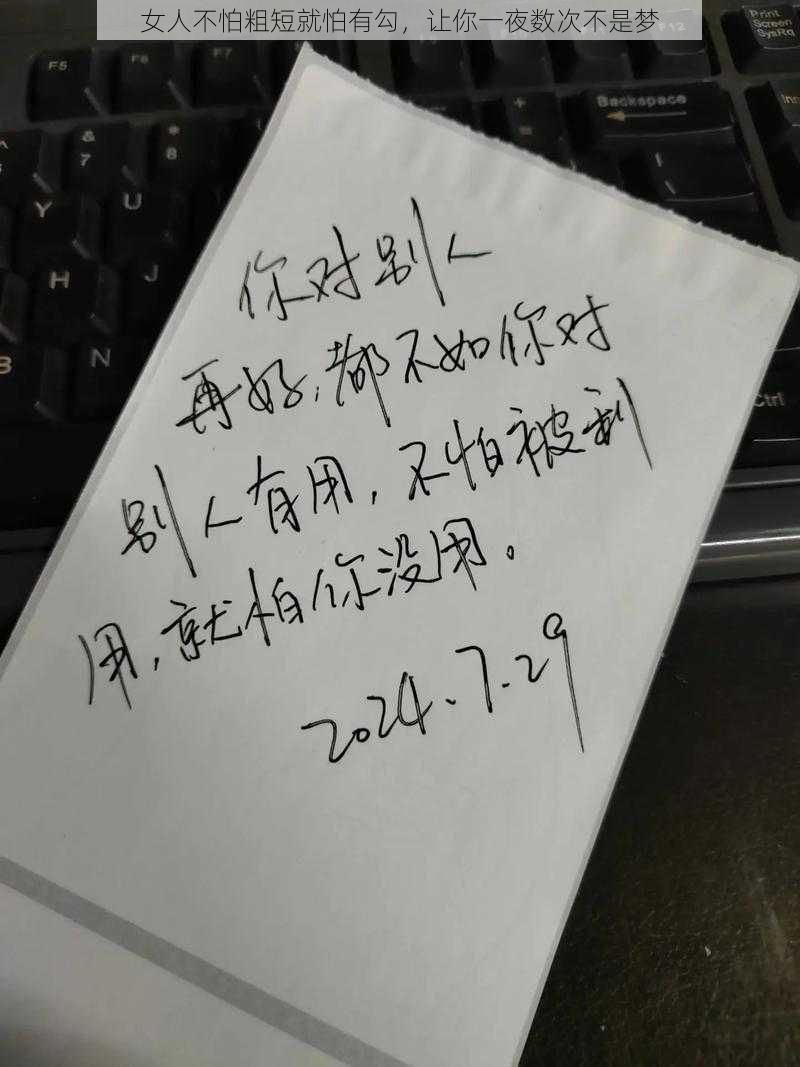 女人不怕粗短就怕有勾，让你一夜数次不是梦
Print
Screen
SysRq
F5
F6
F7
F12
Backspace
&
7
*
8
+
=
|
\
Y
U
H
J
B
N
Ctrl
你对别人
再好，都不如你对
别人有用，不怕被利
用，就怕你没用。
2024.7.29